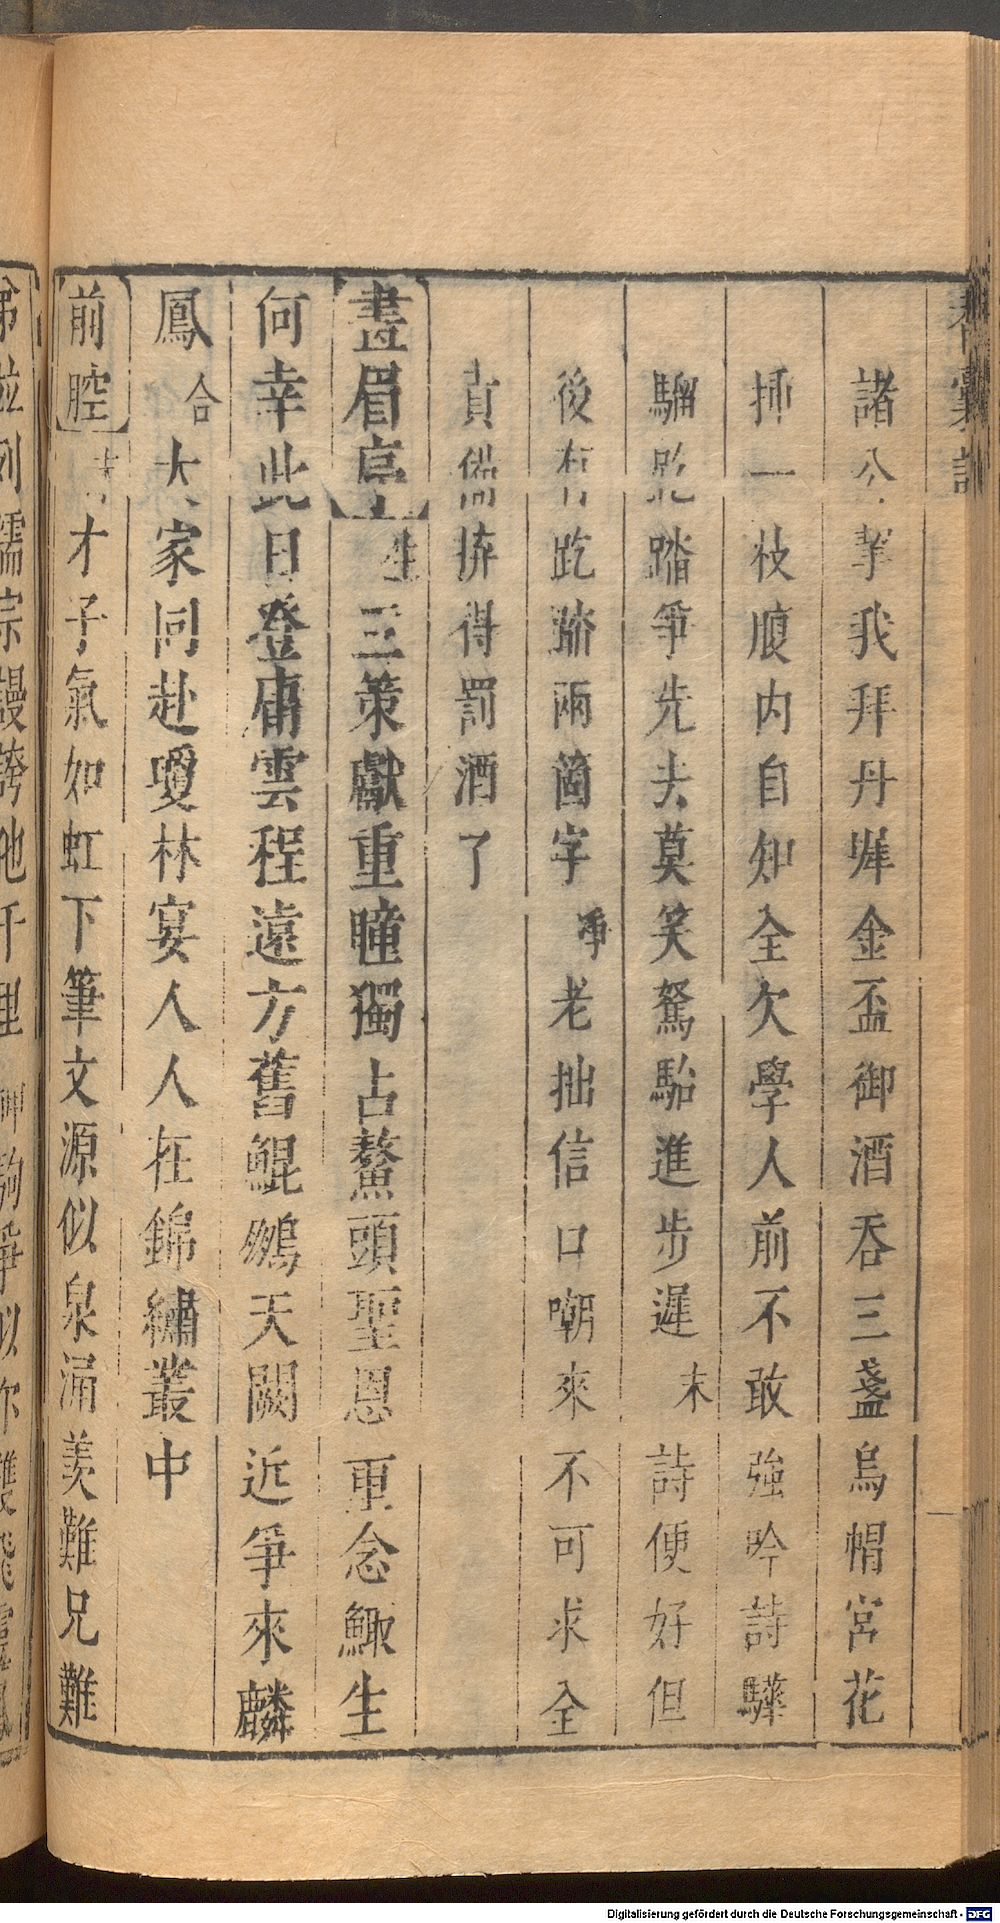 諸公拏我拜丹墀金盃御酒吞三盞烏帽宮花
揷一枝廈内自知全欠學人前不敢強吟詩驊
騮跎踏爭先去莫笑駑駘進步遲末詩便好但
後有跎踏兩箇字爭老拙信口嘲來不可求全
責備拚得罰酒了
畫眉序生三策獻重瞳獨占鰲頭聖恩重念鯫生
何幸此日登庸雲程遠方舊鯤鵬天闕近爭來麟
鳳合大家同赴瓊林宴人人在錦繡叢中
前腔才子氣如虹下筆文源似泉涌羨難兄難
弟並列儒宗謾誇他千里神駒爭似你雙飛靈鳳
Digitalisierung gefördert durch die Deutsche Forschungsgemeinschaft - DFG